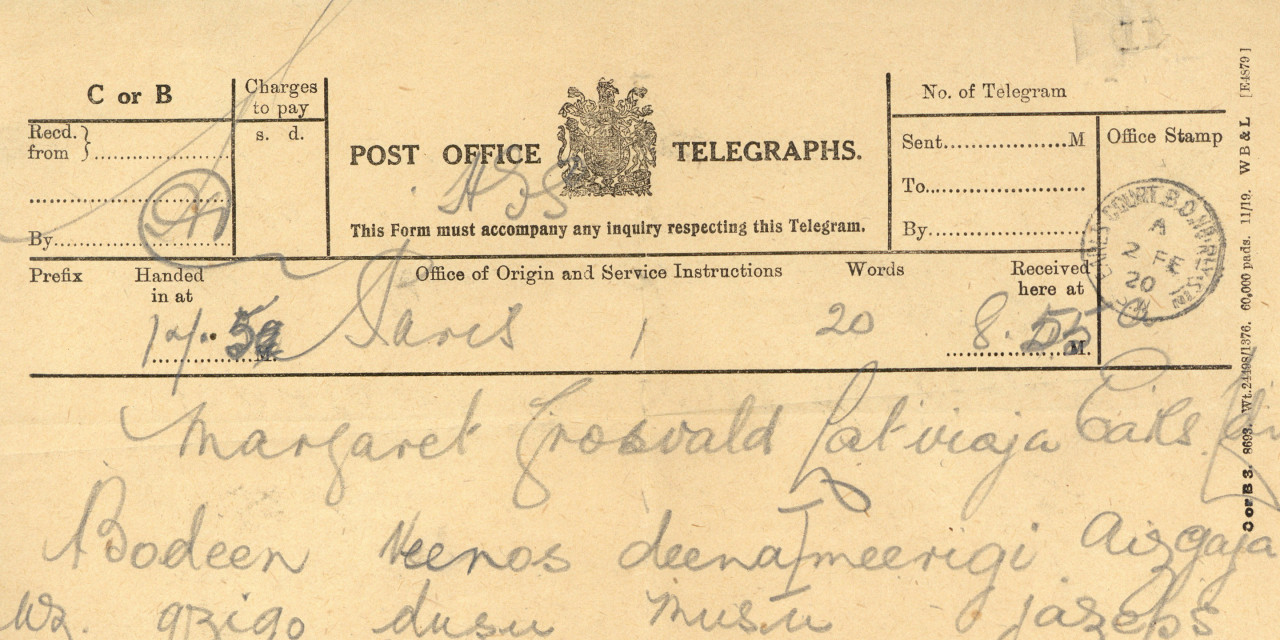 C or B
Charges to pay
s. d.
Recd. from
By
POST OFFICE TELEGRAPHS.
This Form must accompany any inquiry respecting this Telegram.
No. of Telegram
Sent M
To
By
Office Stamp
EARLS COURT B.O.
A
2 FE
20
Prefix
Handed in at
Office of Origin and Service Instructions
Words
Received here at
M
Paris 1 20 8.55 M
Margaret Grosvald Latviaja Earls
Abodeen Neenos deena meerigi Aizgaja
Wz. dusu musu jazeps
C or B 3. 8693. Wt.24498/1376. 60,000 pads. 11/19. W B & L [E4879]